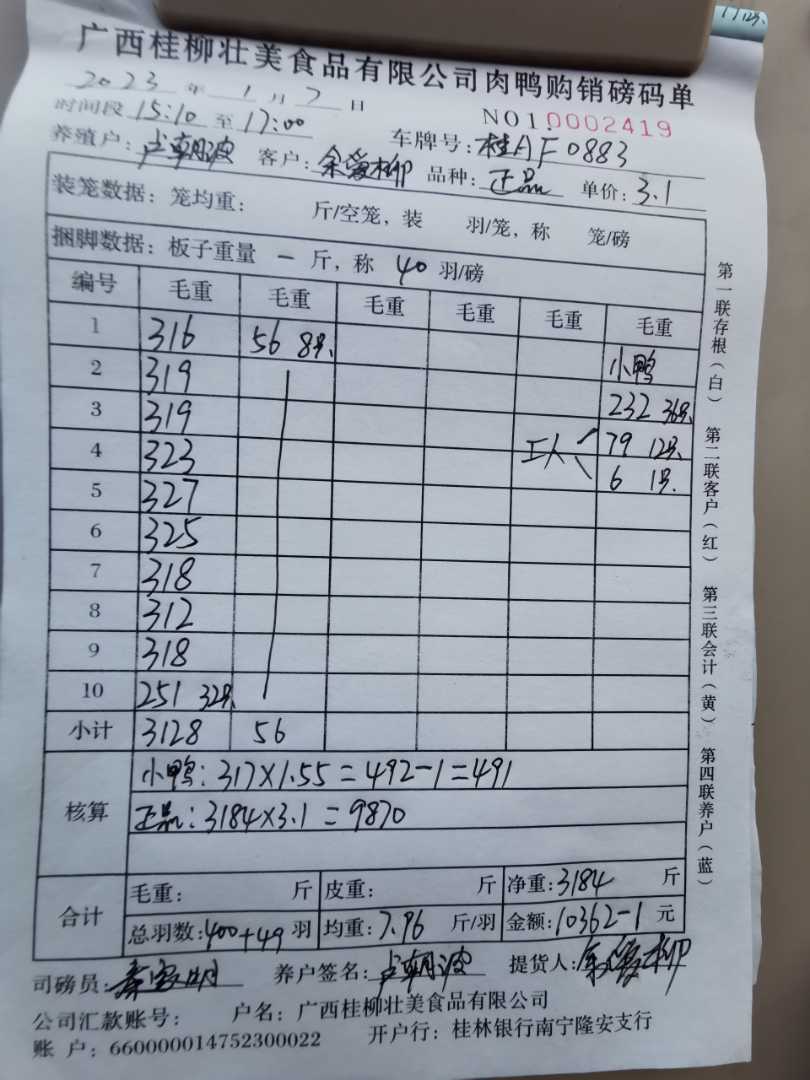 广西桂柳壮美食品有限公司肉鸭购销磅码单
2023 年 1 月 7 日
时间段 15:10 至 17:00 NO1.0002419
养殖户: 卢朝波 客户: 余爱柳 车牌号: 桂AF0883
品种: 正品 单价: 3.1
装笼数据: 笼均重: 斤/空笼, 装 羽/笼, 称 笼/磅
捆脚数据: 板子重量 一 斤, 称 40 羽/磅
编号 毛重 毛重 毛重 毛重 毛重 毛重
1 316 56 8只 小鸭
2 319 232 36只
3 319 工人 79 12只
4 323 6 1只
5 327
6 325
7 318
8 312
9 318
10 251 32只
小计 3128 56
核算 小鸭: 317×1.55=492-1=491
正品: 3184×3.1=9870
合计 毛重: 斤 皮重: 斤 净重: 3184 斤
总羽数: 400+49 羽 均重: 7.96 斤/羽 金额: 10362-1 元
司磅员: 养户签名: 卢朝波 提货人: 余爱柳
公司汇款账号: 户名: 广西桂柳壮美食品有限公司
账 户: 660000014752300022 开户行: 桂林银行南宁隆安支行
第一联存根(白) 第二联客户(红) 第三联会计(黄) 第四联养户(蓝)